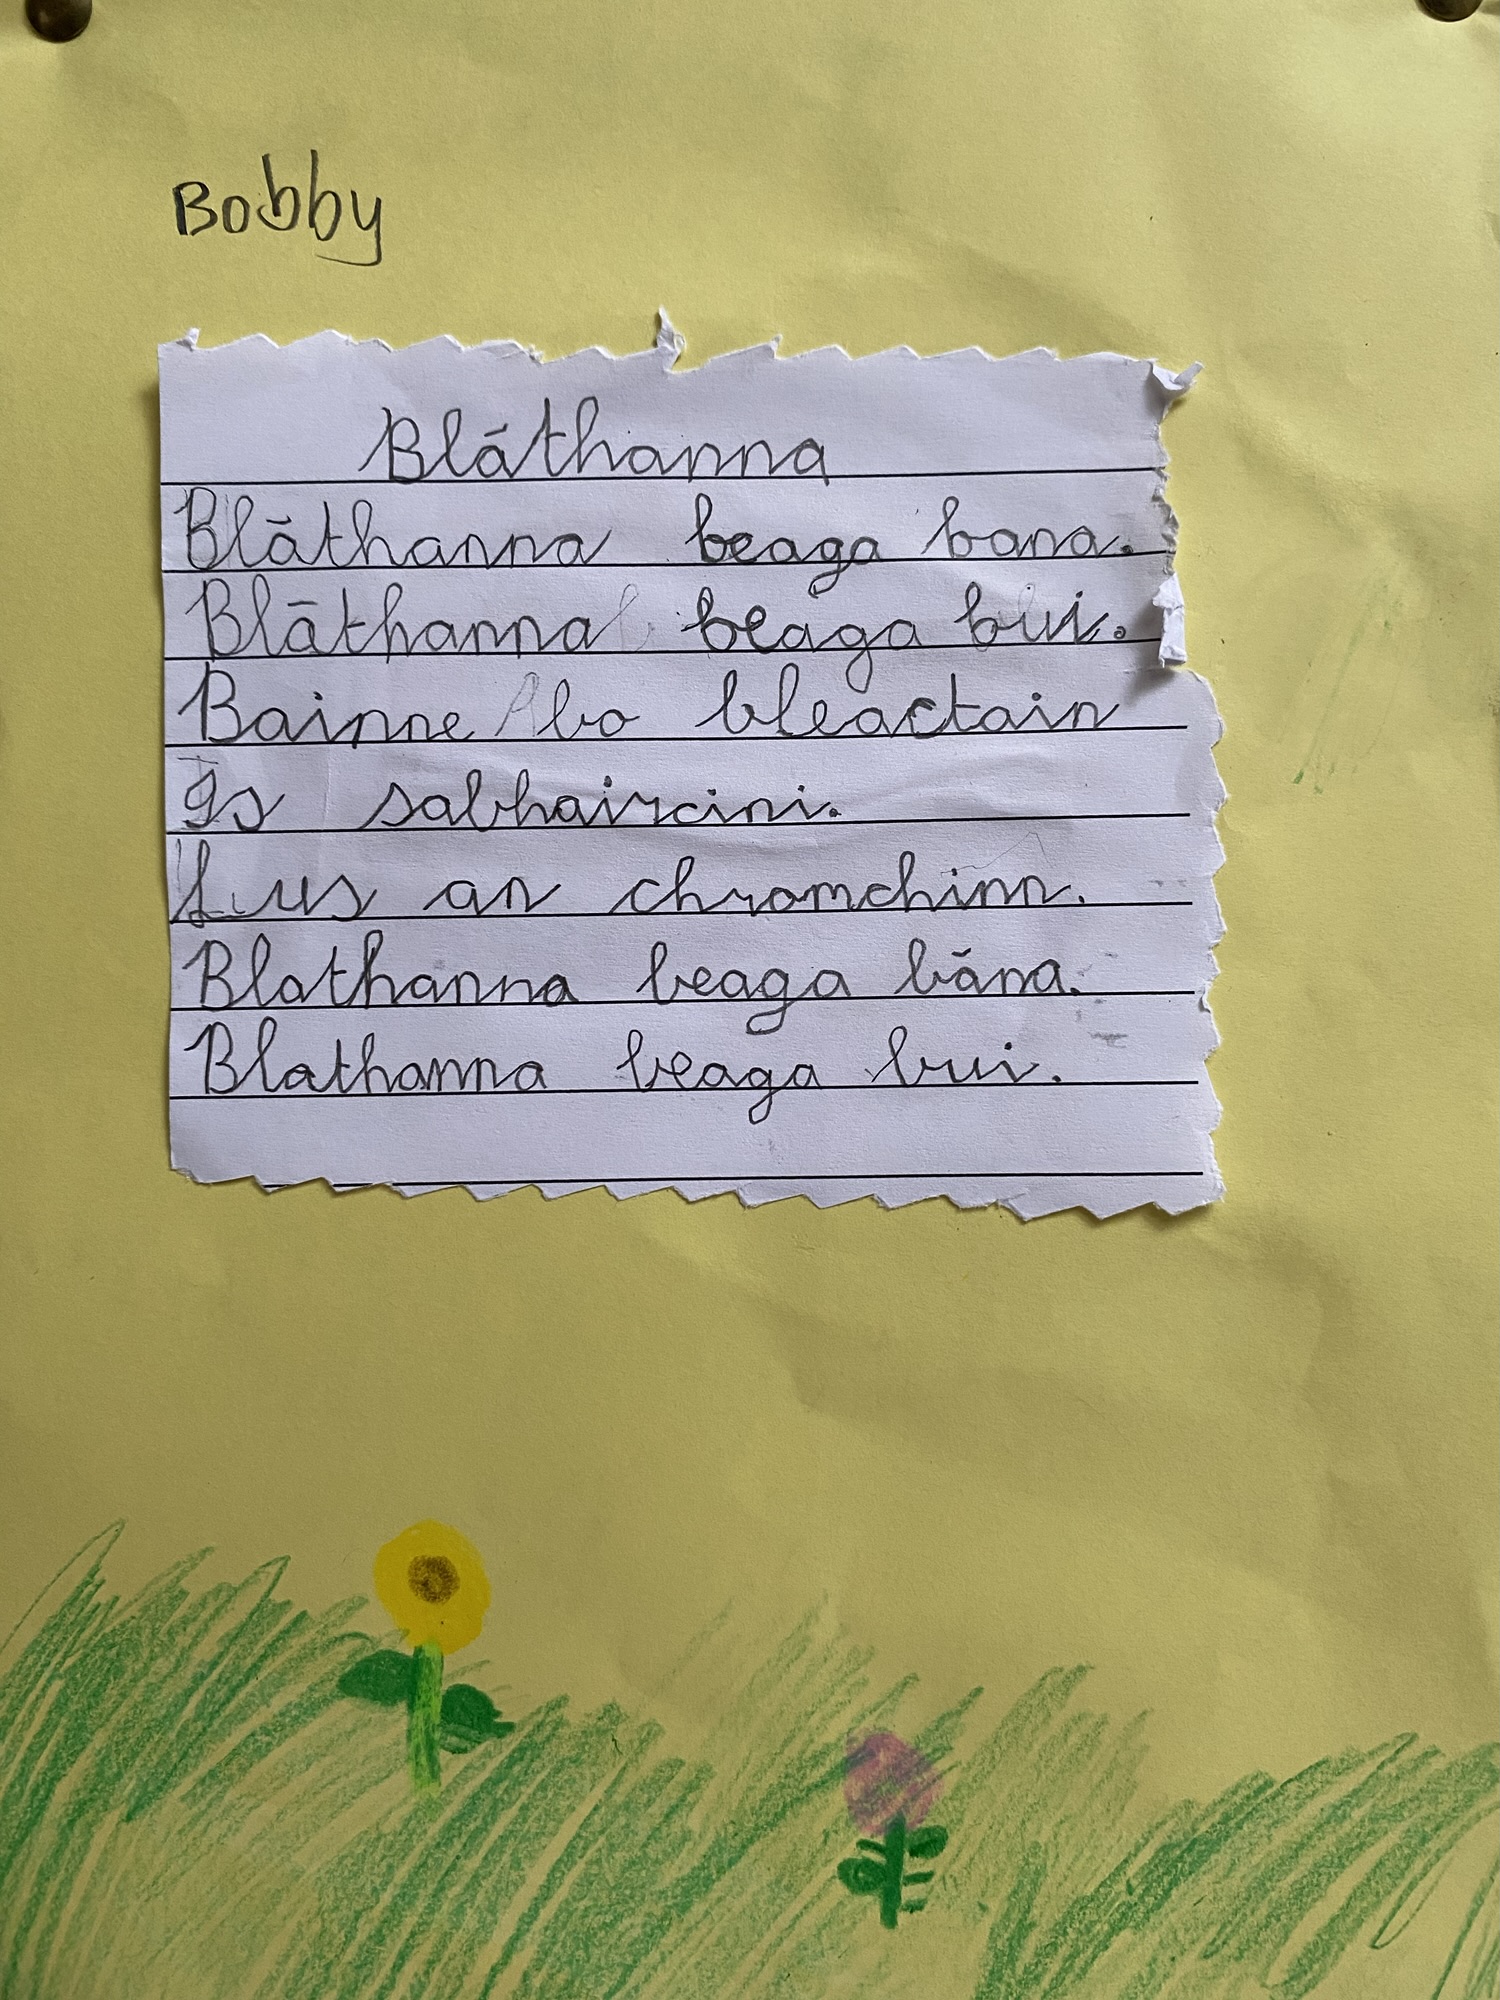 Bobby
Bláthanna
Bláthanna beaga bana.
Bláthanna beaga bui.
Bainne bo bleactain
Is sabhaircini.
Lus an chromchinn.
Blathanna beaga bána.
Blathanna beaga bui.